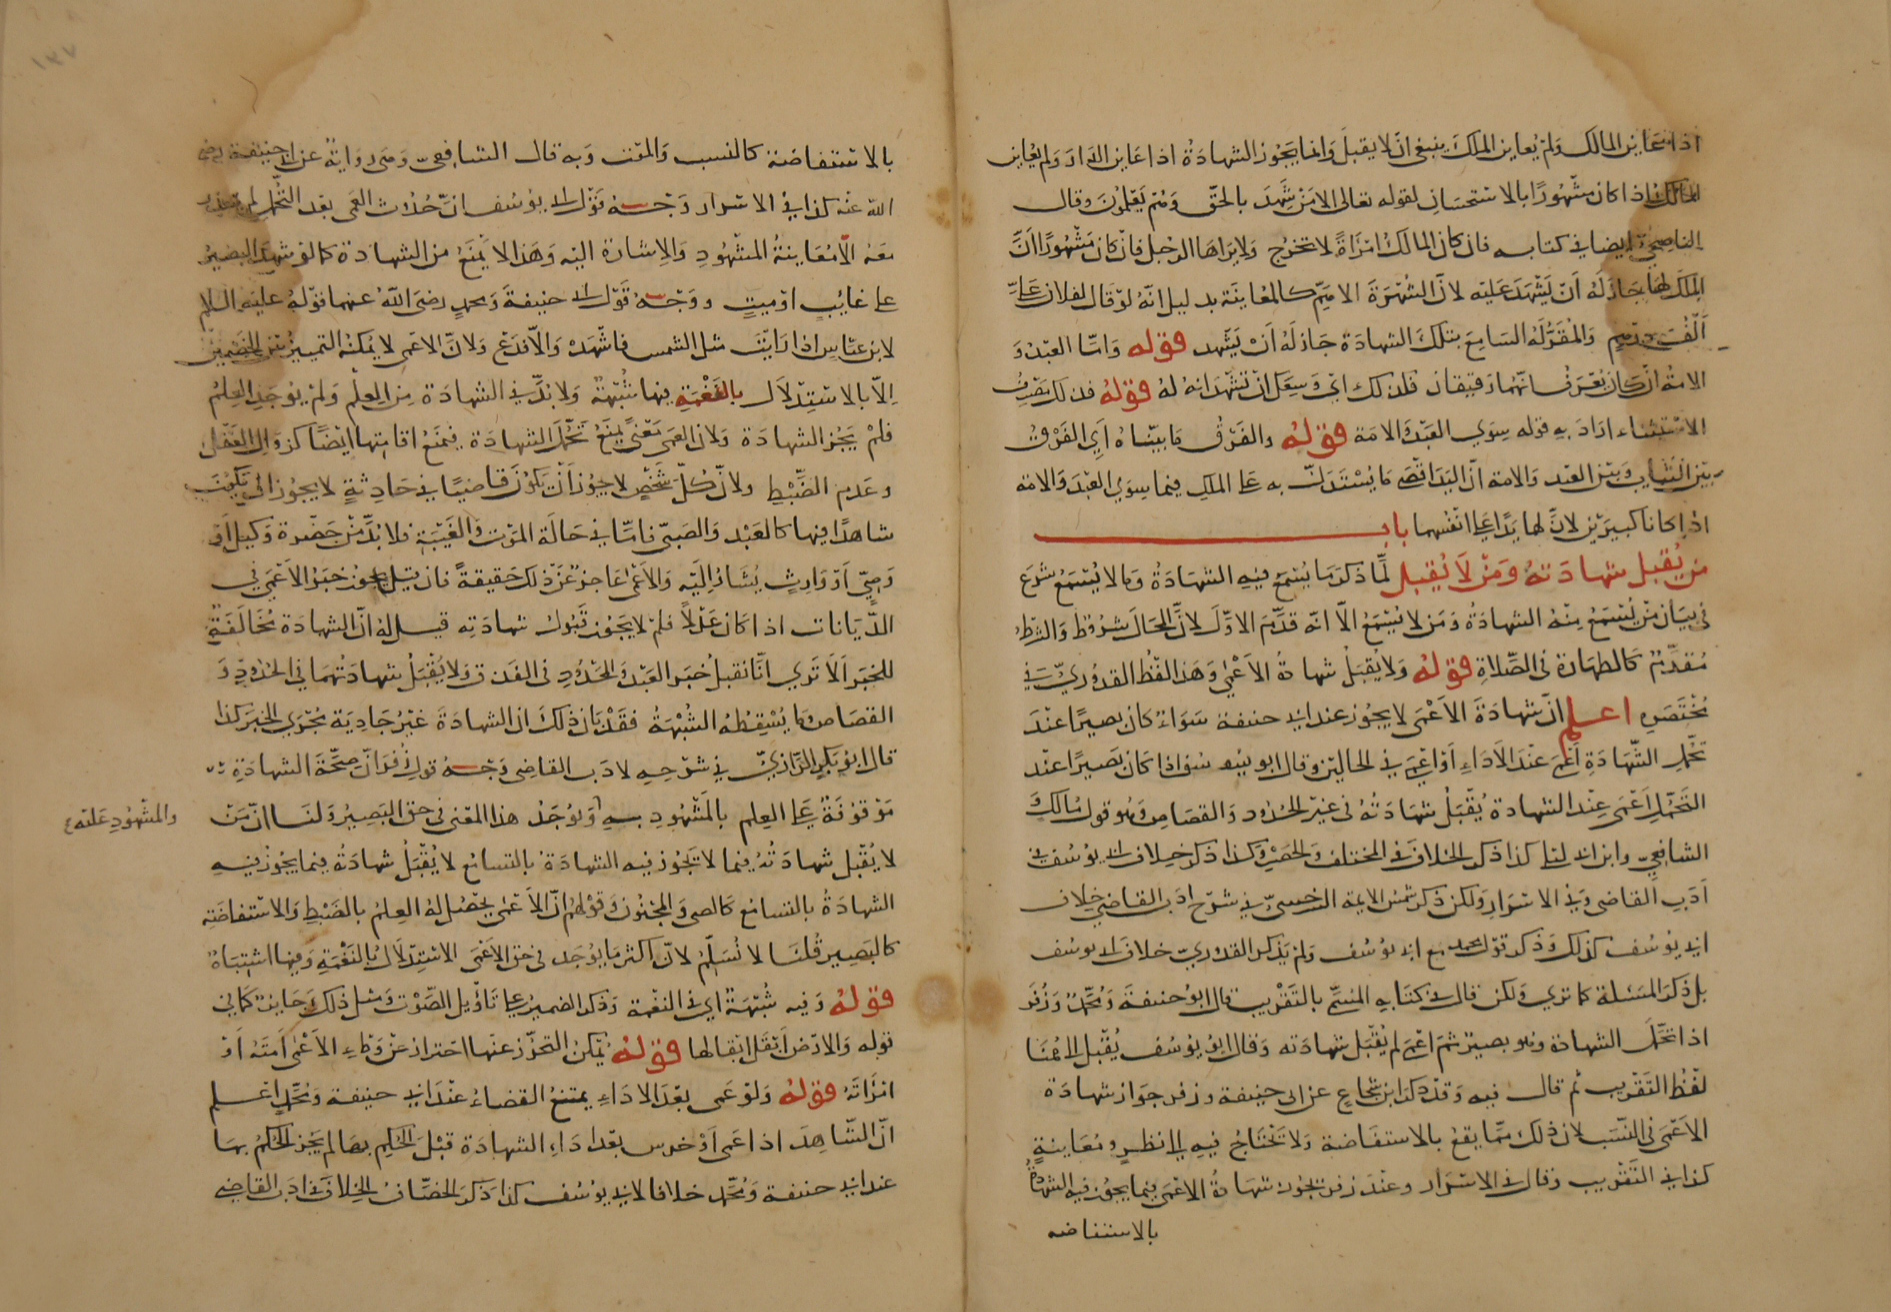 اذا عاين المالك ولم يعاين الملك ينبغي ان لا يقبل وانما يجوز الشهادة اذا عاين الدار ولم يعاين
المالك اذا كان مشهورا بالاستحسان لقوله تعالى الا من شهد بالحق وهم يعلمون وقال
الناصحي ايضا في كتابه فان كان المالك امراة لا تخرج ولا يراها الرجل فان كان مشهورا ان
الملك لها جاز له ان يشهد عليه لان الشهرة الا ميم كالمعاينة بدليل انه لو قال لفلان علي
الف درهم والمقر له السامع بتلك الشهادة جاز له ان يشهد قوله واما العبد و
الامة ان كان يعرف انهما رقيقان فلذلك اي وسعك ان تشهد انه له قوله فذلك يصرف
الاستثناء اراد به قوله سوي العبد والامة قوله والفرق ما بيناه اي الفرق
بين الثياب وبين العبد والامة ان اليد اقصى ما يستدل به على الملك فيما سوي العبد والامة
اذا كانا كبيرين لان لهما يدا على انفسهما باب
من يقبل شهادته ومن لا يقبل لما ذكر ما يسمع فيه الشهادة وما لا يسمع شرع
في بيان من يسمع منه الشهادة ومن لا يسمع الا انه قدم الاول لان المحال شروط والشرط
مقدم كالطهارة في الصلاة قوله ولا يقبل شهادة الاعمى وهذا لفظ القدوري في
مختصره اعلم ان شهادة الاعمى لا يجوز عند ابي حنيفة سواء كان بصيرا عند
تحمل الشهادة اعمى عند الاداء او اعمى في الحالين وقال ابو يوسف اذا كان بصيرا عند
التحمل اعمى عند الشهادة يقبل شهادته في غير الحدود والقصاص وهو قول مالك
الشافعي وابن ابي ليلى كذا ذكر الخلاف في المختلف والحصر وكذا ذكر خلاف ابي يوسف في
ادب القاضي وفي الاسرار ولكن ذكر شمس الايمة السرخسي في شرح ادب القاضي خلاف
ابي يوسف كذلك وذكر قول محمد مع ابي يوسف ولم يذكر القدوري خلاف ابي يوسف
بل ذكر المسئلة كما تري ولكن قال في كتابه المسمى بالتقريب قال ابو حنيفة ومحمد وزفر
اذا تحمل الشهادة وهو بصير ثم اعمى لم يقبل شهادته وقال ابو يوسف يقبل الى هنا
لفظ التقريب ثم قال فيه وقد ذكر ابن شجاع عن ابي حنيفة وزفر جواز شهادة
الاعمى في النسب لان ذلك مما يقع بالاستفاضة ولا تحتاج فيه الى نظر ومعاينة
كذا في التقريب وقال في الاسرار وعند زفر تجوز شهادة الاعمى فيما يجوز فيه الشهادة
بالاستفاضه
بالاستفاضة كالنسب والموت وبه قال الشافعي وهي رواية عن ابي حنيفة رضي
الله عنه كذا في الاسرار وجه قول ابي يوسف ان حدوث العمى بعد التحمل لم
معه الا معاينة المشهود والاشارة اليه وهذا لا يمنع من الشهادة كما لو شهد البصير
على غايب او ميت ووجه قول ابي حنيفة ومحمد رضي الله عنهما قوله عليه السلام
لابن عباس اذا رايت مثل الشمس فاشهد والا فدع ولان الاعمى لا يمكنه التمييز بين الخصمين
الا بالاستدلال بالنغمة فيها شبهة ولا بد في الشهادة من العلم ولم يوجد العلم
فلم يجز الشهادة ولان العمى معنى يمنع تحمل الشهادة فيمنع اقامتها ايضا كزوال العقل
وعدم الضبط ولان كل شخص لا يجوز ان يكون قاضيا في حادثة لا يجوز ان يكون
شاهدا فيها كالعبد والصبي فاما في حالة الموت والغيبة فلا بد من حضرة وكيل او
وصي او وارث يشار اليه والاعمى عاجز عن ذلك حقيقة فان قيل يجوز خبر الاعمى في
الديانات اذا كان عدلا فلم لا يجوز قبول شهادته قيل له ان الشهادة مخالفة
للخبر الا تري انا نقبل خبر العبد والمحدود في القذف ولا يقبل شهادتهما في الحدود و
القصاص ما يسقطه الشبهة فقد بان ذلك ان الشهادة غير جارية مجرى الخبر كذا
قال ابو بكر الرازي في شرحه لادب القاضي وجه قول زفر ان صحة الشهادة
موقوفة على العلم بالمشهود به ويوجد هذا المعنى في حق البصير ولنا ان من
والمشهود عليه
لا يقبل شهادته فيما لا تجوز فيه الشهادة بالتسامع لا يقبل شهادته فيما يجوز فيه
الشهادة بالتسامع كالصبي والمجنون وقولهم ان الاعمى يحصل له العلم بالضبط والاستفاضة
كالبصير قلنا لا نسلم لان اكثر ما يوجد في حق الاعمى الاستدلال بالنغمة وفيها اشتباه
قوله وفيه شبهة اي في النغمة وذكر الضمير على تاويل الصوت ومثل ذلك جايز كما في
قوله والارض ابقل ابقالها قوله يمكن التحرز عنها احتراز عن وطء الاعمى امته او
امراته قوله ولو عمى بعد الاداء يمتنع القضاء عند ابي حنيفة ومحمد اعلم
ان الشاهد اذا عمى او خرس بعد اداء الشهادة قبل الحكم بها لم يجز الحكم بها
عند ابي حنيفة ومحمد خلافا لابي يوسف كذا ذكر الخصاف الخلاف في ادب القاضي